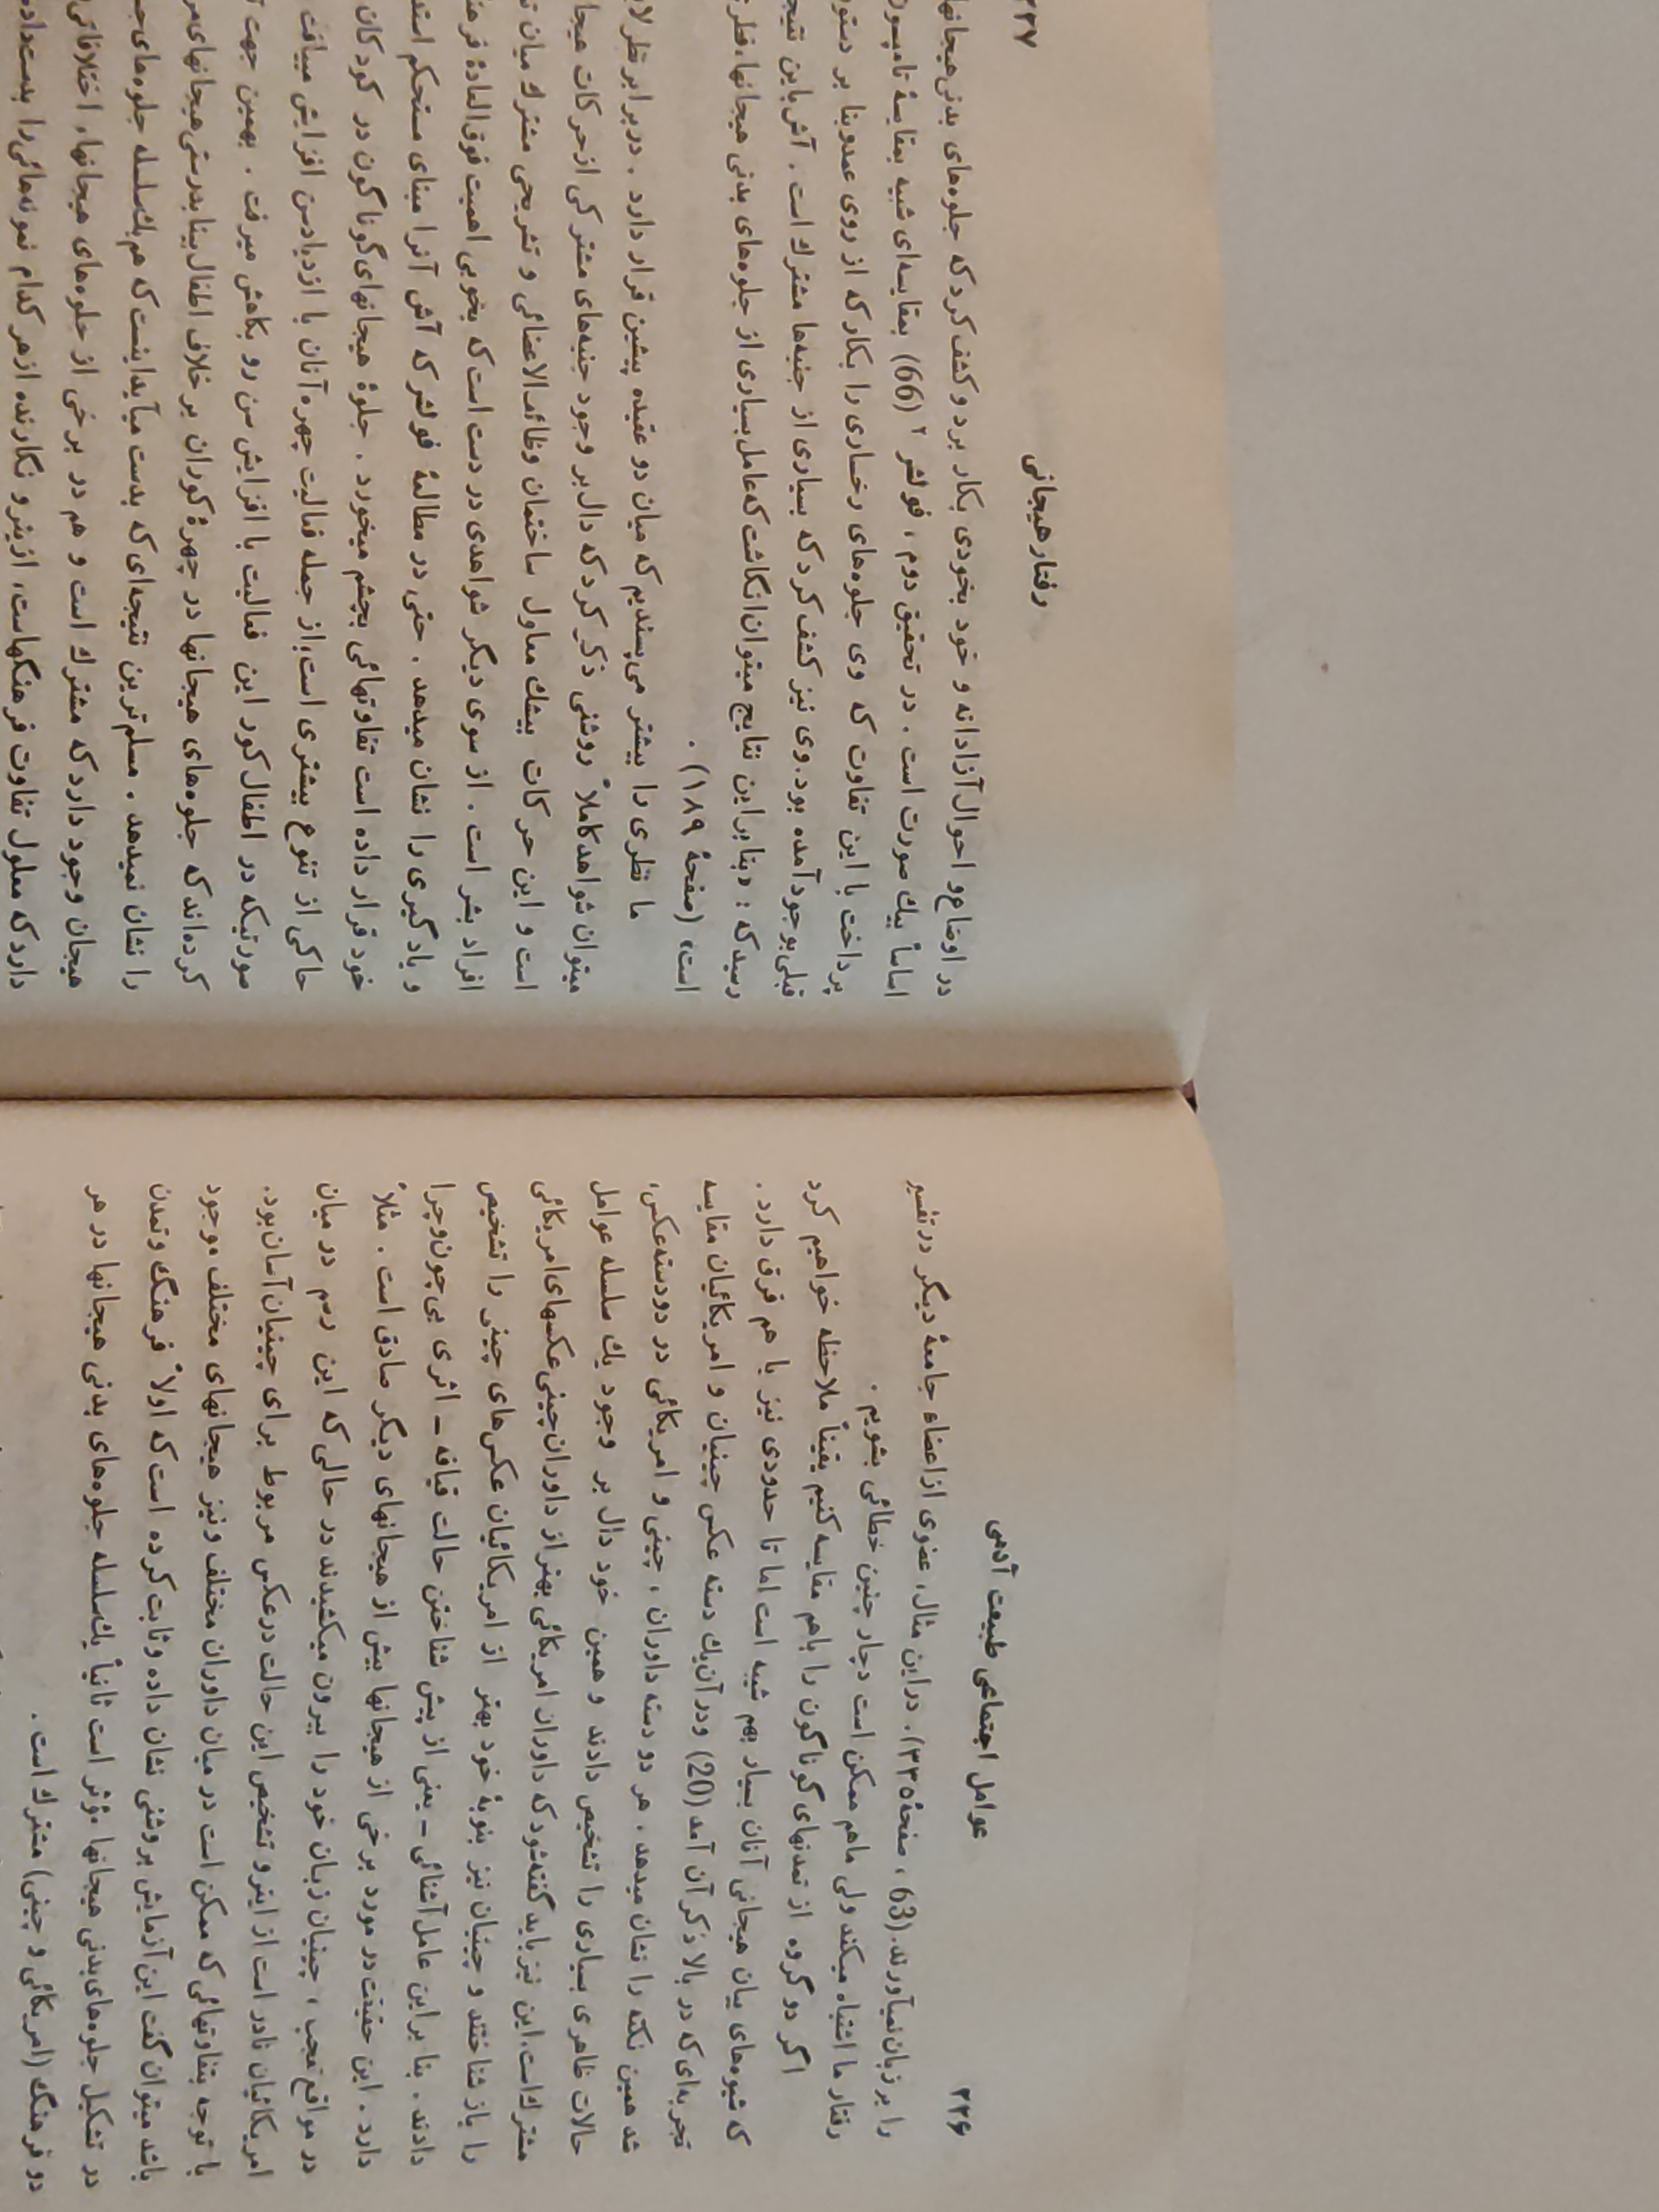 ۲۲۶
عوامل اجتماعی طبیعت آدمی
را بر زبان نمیآورند. (63، صفحهٔ ۳۳۵). در این مثال، عضوی از اعضاء جامعهٔ دیگر در تفسیر
رفتار ما اشتباه میکند ولی ما هم ممکن است دچار چنین خطائی بشویم .
اگر دو گروه از تمدنهای گوناگون را باهم مقایسه کنیم یقیناً ملاحظه خواهیم کرد
که شیوه‌های بیان هیجانی آنان بسیار بهم شبیه است اما تا حدودی نیز با هم فرق دارد .
تجربه‌ای که در بالا ذکر آن آمد (20) و در آن یك دسته عکس چینیان و امریکائیان مقایسه
شد همین نکته را نشان میدهد . هر دو دسته داوران ، چینی و امریکائی در دو دسته عکس،
حالات ظاهری بسیاری را تشخیص دادند و همین خود دال بر وجود یك سلسله عوامل
مشترك است. این نیز باید گفته شود که داوران امریکائی بهتر از داوران چینی عکسهای امریکائی
را باز شناختند و چینیان نیز بنوبهٔ خود بهتر از امریکائیان عکس‌های چینی را تشخیص
دادند . بنا بر این عامل آشنائی - یعنی از پیش شناختن حالت قیافه - اثری بی‌چون‌وچرا
دارد . این حقیقت در مورد برخی از هیجانها بیش از هیجانهای دیگر صادق است . مثلاً
در مواقع تعجب ، چینیان زبان خود را بیرون میکشیدند در حالی که این رسم در میان
امریکائیان نادر است از اینرو تشخیص این حالت در عکس مربوط برای چینیان آسان بود.
با توجه بتفاوتهائی که ممکن است در میان داوران مختلف و نیز هیجانهای مختلف موجود
باشد میتوان گفت این آزمایش بروشنی نشان داده و ثابت کرده است که اولاً فرهنگ و تمدن
در تشکیل جلوه‌های بدنی هیجانها مؤثر است ثانیاً یك سلسله جلوه‌های بدنی هیجانها در هر
دو فرهنگ (امریکائی و چینی) مشترك است .
رفتار هیجانی
۲۲۷
در اوضاع و احوال آزادانه و خود بخودی بکار برد و کشف کرد که جلوه‌های بدنی هیجانها
اساساً بیك صورت است . در تحقیق دوم ، فولشر ۲ (66) بمقایسه‌ای شبیه بمقایسهٔ تامپسون
پرداخت با این تفاوت که وی جلوه‌های رخساری را بکار که از روی عمد و بنا بر دستور
قبلی بوجود آمده بود. وی نیز کشف کرد که بسیاری از جنبه‌ها مشترك است . آش باین
رسید که : «بنابراین نتایج میتوان انگاشت که عامل بسیاری از جلوه‌های بدنی هیجانها،
است» (صفحهٔ ۱۸۹) .
ما نظری را بیشتر می‌پسندیم که میان دو عقیده پیشین قرار دارد . در برابر نظر
میتوان شواهد کاملاً روشنی ذکر کرد که دال بر وجود جنبه‌های مشترکی از حرکات
است و این حرکات بیشك معلول ساختمان وظائف‌الاعضائی و تشریحی مشترك میان
افراد بشر است . از سوی دیگر شواهدی در دست است که بخوبی اهمیت فوق‌العادهٔ
و یادگیری را نشان میدهد . حتی در مطالعهٔ فولشر که آش آنرا مبنای مستحکم
خود قرار داده است تفاوتهائی بچشم میخورد . جلوهٔ هیجانهای گوناگون در کودکان
حاکی از تنوع بیشتری است؛ از جمله فعالیت چهره آنان با ازدیاد سن افزایش مییافت
صورتیکه در اطفال کور این فعالیت با افزایش سن رو بکاهش میرفت . بهمین جهت
کرده‌اند که جلوه‌های هیجانها در چهرهٔ کوران بر خلاف اطفال بینا بدرستی هیجانهای
را نشان نمیدهد . مسلم‌ترین نتیجه‌ای که بدست میآید اینست که هم یك سلسله جلوه‌های
هیجان وجود دارد که مشترك است و هم در برخی از جلوه‌های هیجانها، اختلافاتی
دارد که معلول تفاوت فرهنگهاست، ازینرو نگارنده از هر کدام نمونه‌هائی را بدست